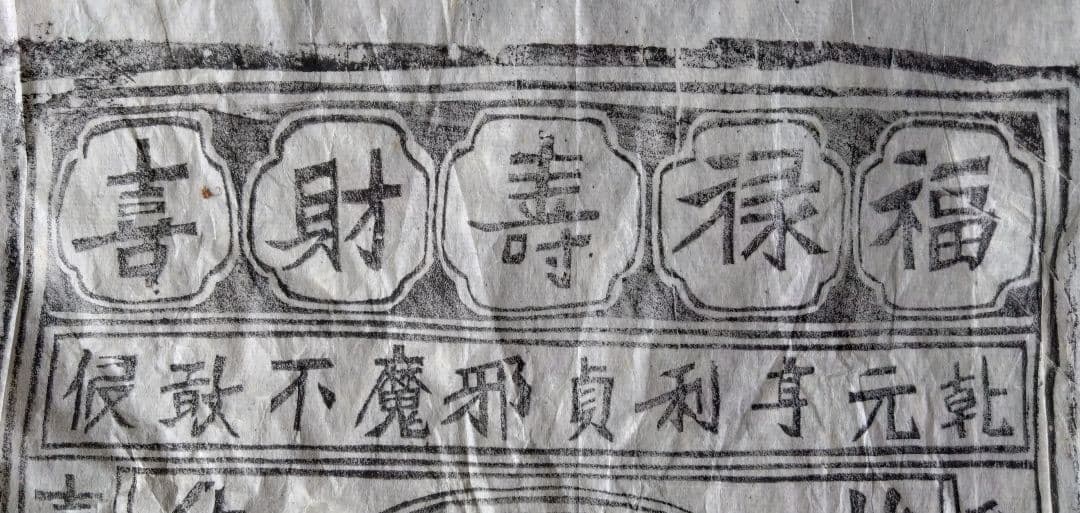 福禄壽財喜
乾元亨利貞邪魔不敢侵